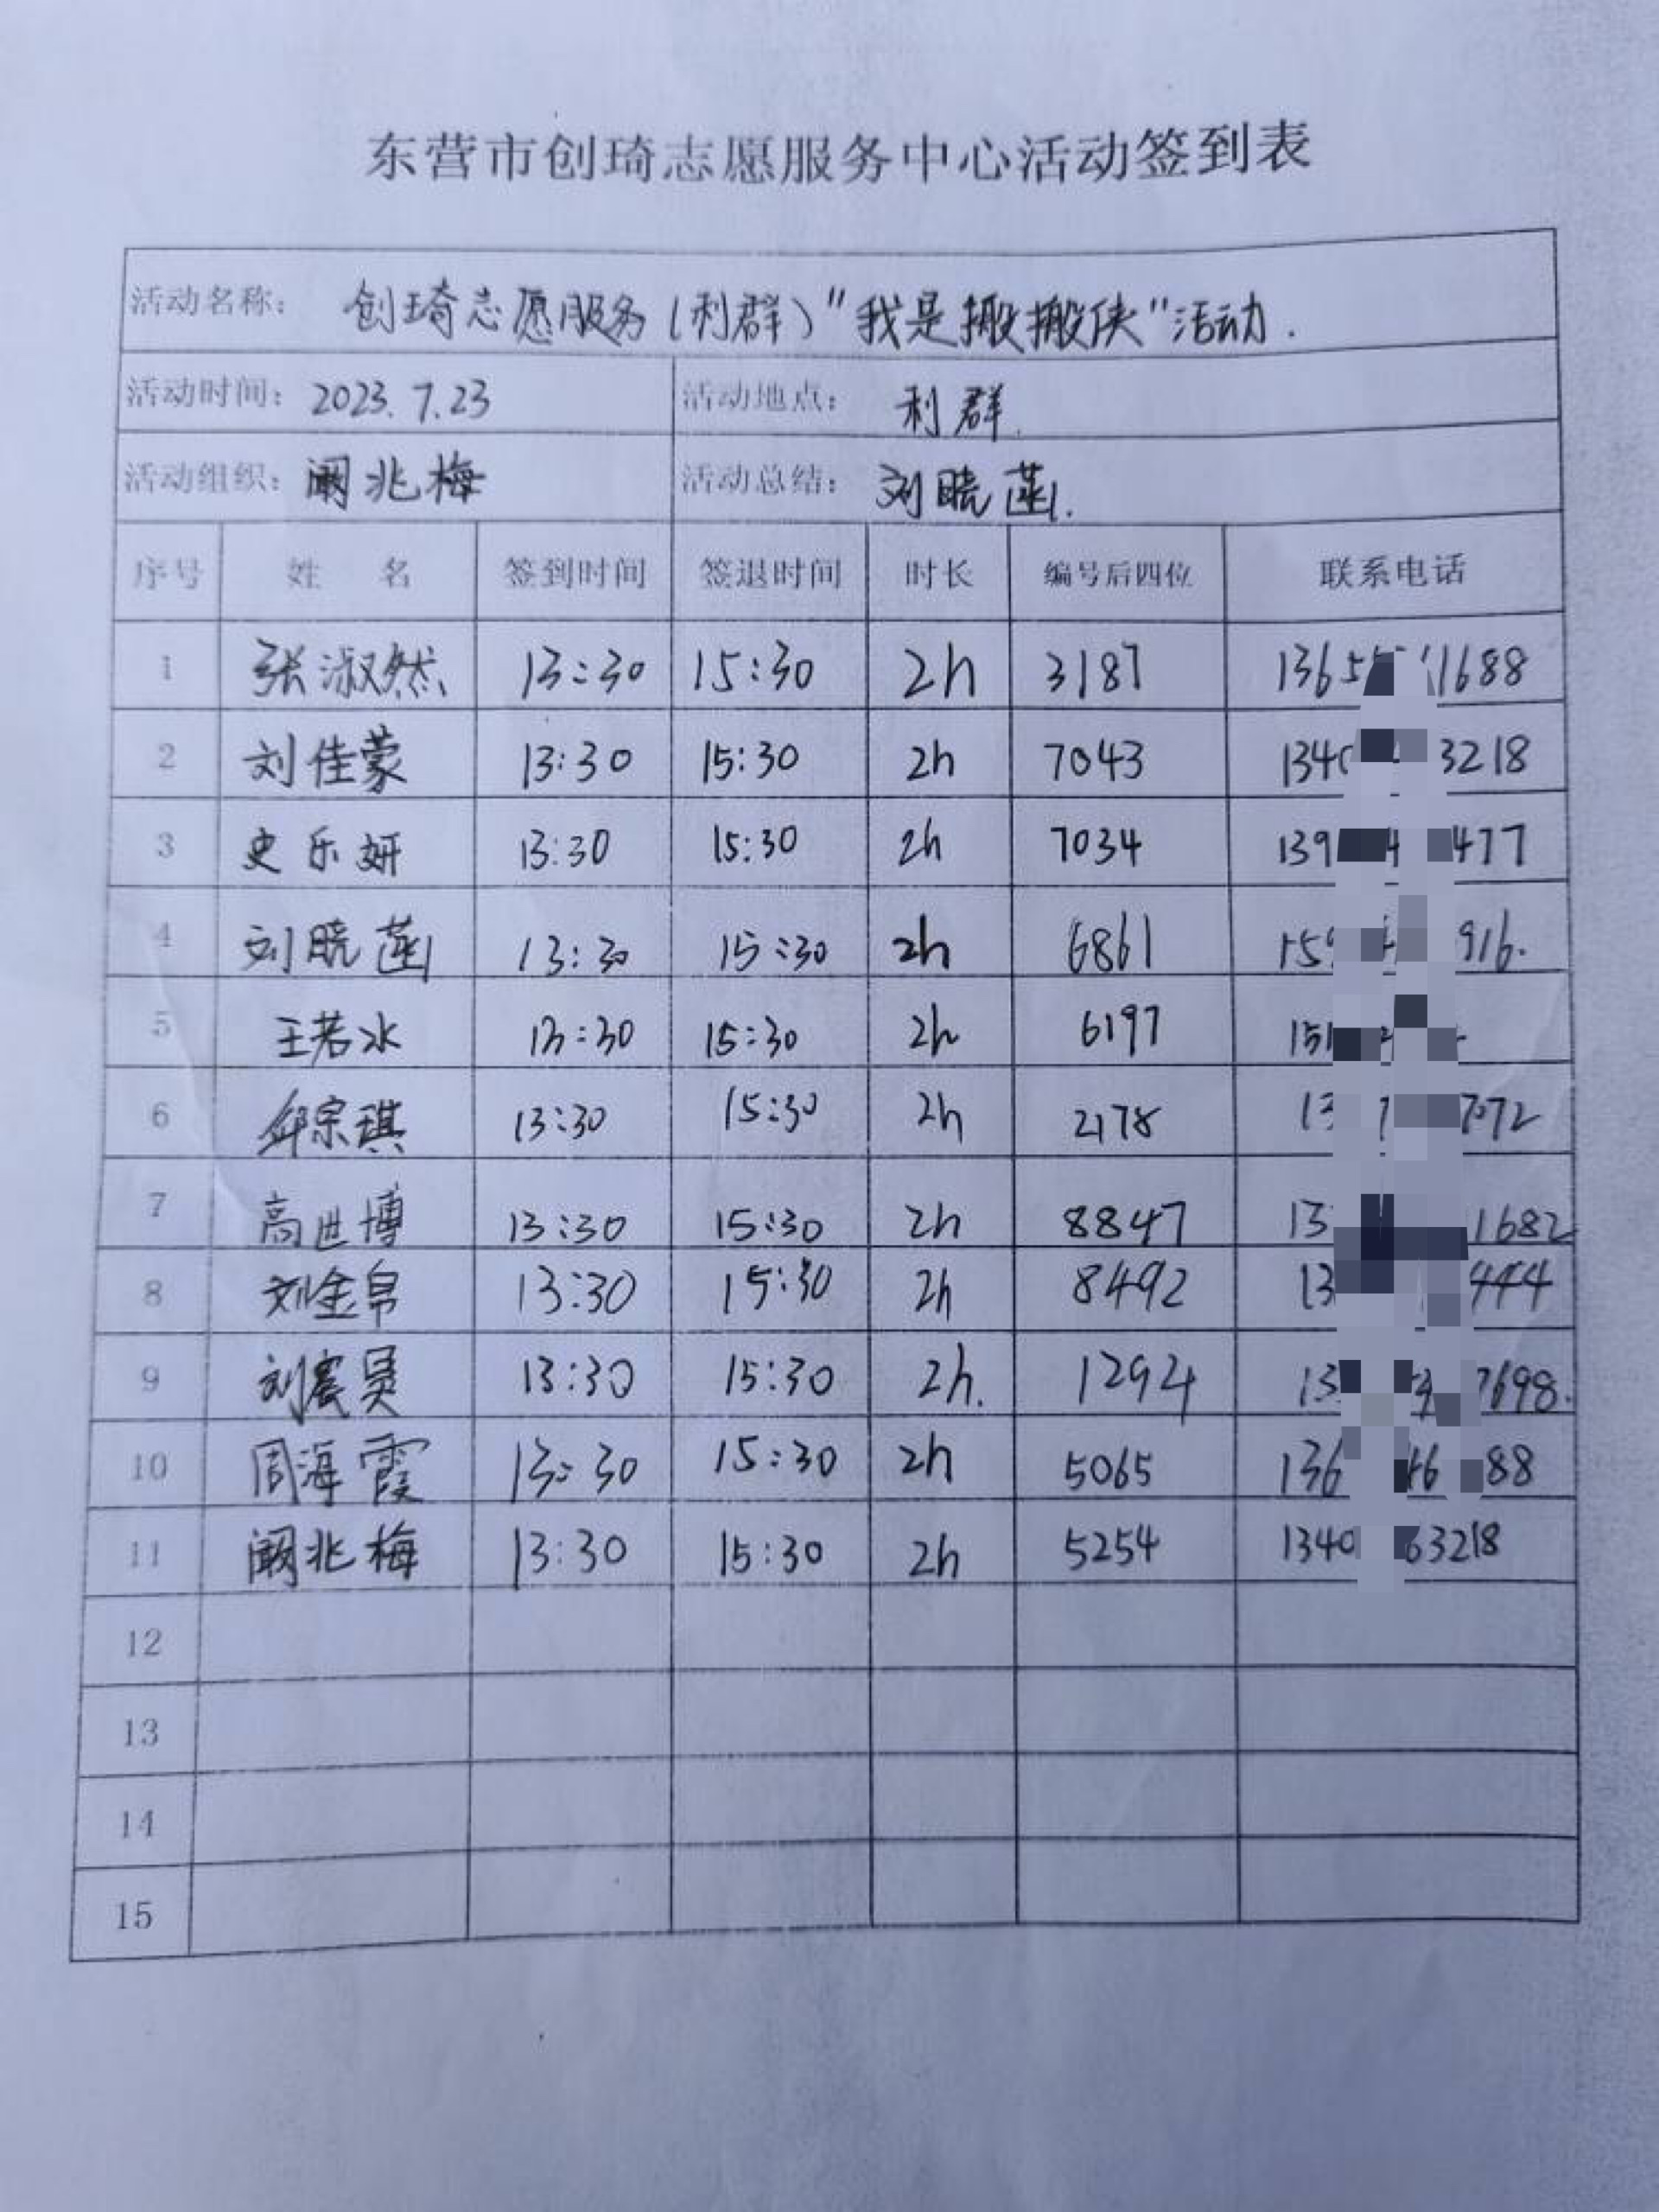 东营市创琦志愿服务中心活动签到表
活动名称: 创琦志愿服务(利群)"我是搬搬侠"活动.
活动时间: 2023.7.23 活动地点: 利群.
活动组织: 阚兆梅 活动总结: 刘晓菡.
序号 姓 名 签到时间 签退时间 时长 编号后四位 联系电话
1 张淑然 13:30 15:30 2h 3187 1365 1688
2 刘佳蒙 13:30 15:30 2h 7043 134 3218
3 史乐妍 13:30 15:30 2h 7034 139 4 477
4 刘晓菡 13:30 15:30 2h 6861 15 916.
5 王若水 13:30 15:30 2h 6197 151
6 宗琪 13:30 15:30 2h 2178 13 7072
7 高世博 13:30 15:30 2h 8847 13 1682
8 刘金帛 13:30 15:30 2h 8492 13 444
9 刘宸昊 13:30 15:30 2h. 1294 13 7698.
10 周海霞 13:30 15:30 2h 5065 136 46 88
11 阚兆梅 13:30 15:30 2h 5254 1340 63218
12
13
14
15